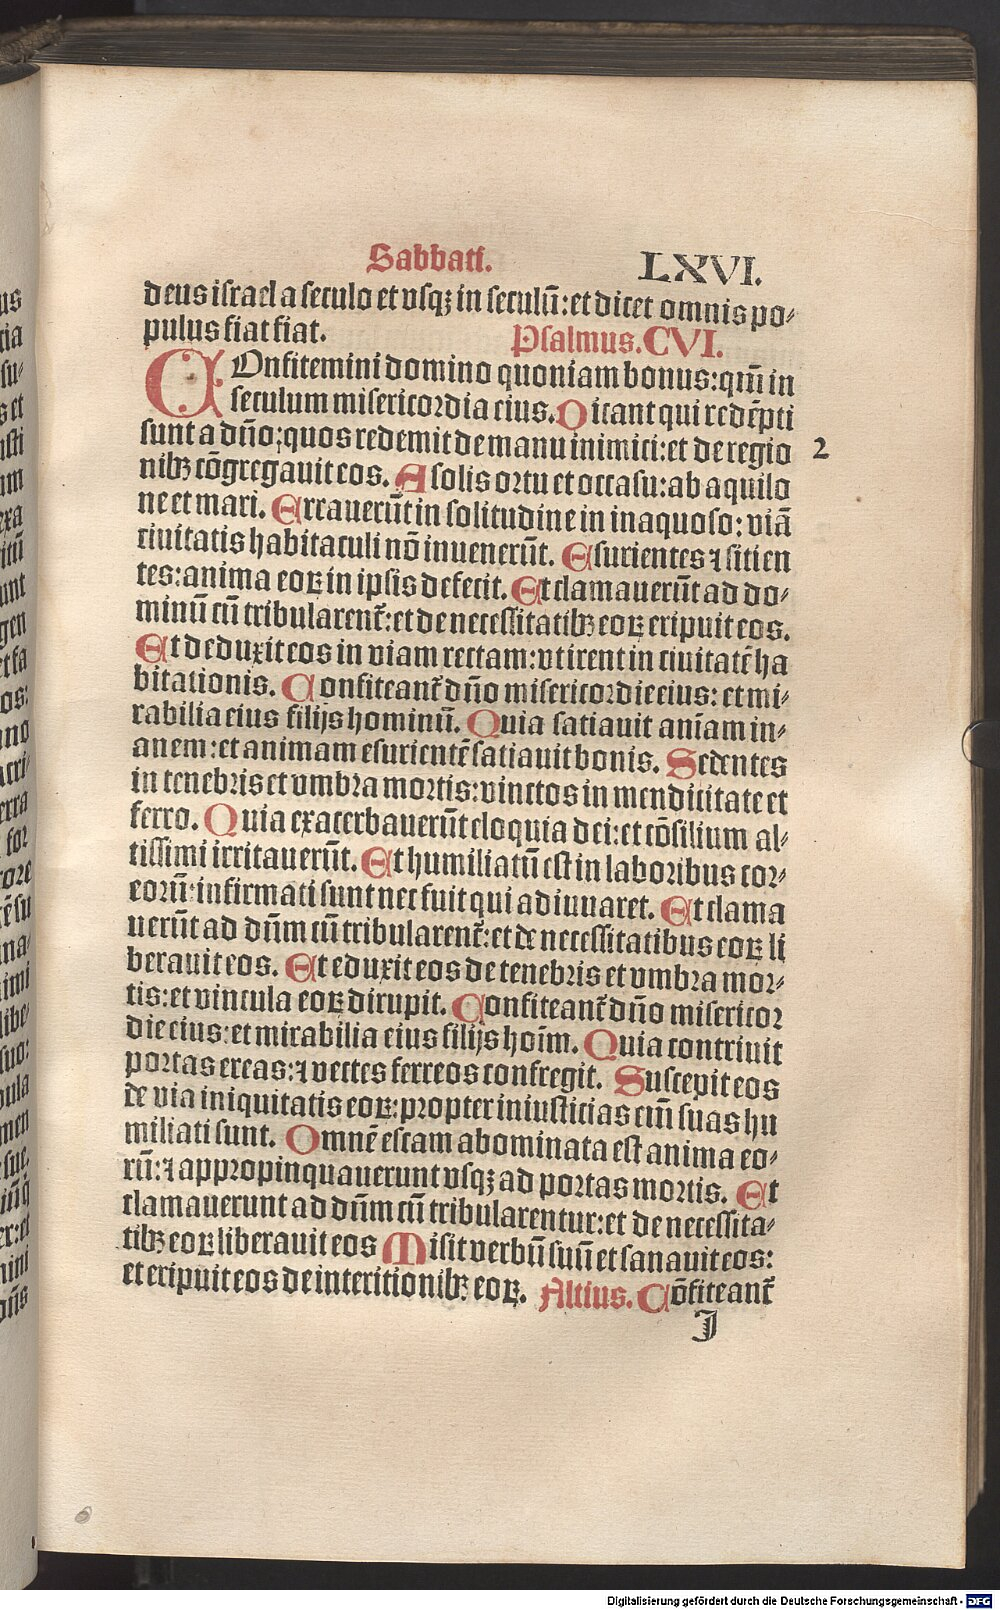 Sabbati. LXVI.
deus israel a seculo et vsqꝫ in seculū: et dicet omnis po⸗
pulus fiat fiat. Psalmus. CVI.
COnfitemini domino quoniam bonus: qm̄ in
seculum misericordia eius. Dicant qui redēpti
sunt a dn̄o: quos redemit de manu inimici: et de regio 2
nibꝫ cōgregauit eos. A solis ortu et occasu: ab aquilo
ne et mari. Errauerūt in solitudine in inaquoso: viā
ciuitatis habitaculi nō inuenerūt. Esurientes ⁊ sitien
tes: anima eoꝝ in ipsis defecit. Et clamauerūt ad do⸗
minū cū tribularent᷑: et de necessitatibꝫ eoꝝ eripuit eos.
Et deduxit eos in viam rectam: vt irent in ciuitatē ha
bitationis. Confiteant᷑ dn̄o misericordie eius: et mi⸗
rabilia eius filijs hominū. Quia satiauit aniam in⸗
anem: et animam esurientē satiauit bonis. Sedentes
in tenebris et vmbra mortis: vinctos in mendicitate et
ferro. Quia exacerbauerūt eloquia dei: et cōsilium al⸗
tissimi irritauerūt. Et humiliatū est in laboribus cor⸗
eorū: infirmati sunt nec fuit qui adiuuaret. Et clama
uerūt ad dn̄m cū tribularent᷑: et de necessitatibus eoꝝ li
berauit eos. Et eduxit eos de tenebris et vmbra mor⸗
tis: et vincula eoꝝ dirupit. Confiteant᷑ dn̄o misericor
die eius: et mirabilia eius filijs hoīm. Quia contriuit
portas ereas: ⁊ vectes ferreos confregit. Suscepit eos
de via iniquitatis eoꝝ: propter iniusticias em̄ suas hu
miliati sunt. Omnē escam abominata est anima eo⸗
rū: ⁊ appropinquauerunt vsqꝫ ad portas mortis. Et
clamauerunt ad dn̄m cū tribularentur: et de necessita⸗
tibꝫ eoꝝ liberauit eos Misit verbū suū et sanauit eos:
et eripuit eos de interitionibꝫ eoꝝ. Altius. Cōfiteant᷑
J
Digitalisierung gefördert durch die Deutsche Forschungsgemeinschaft - DFG